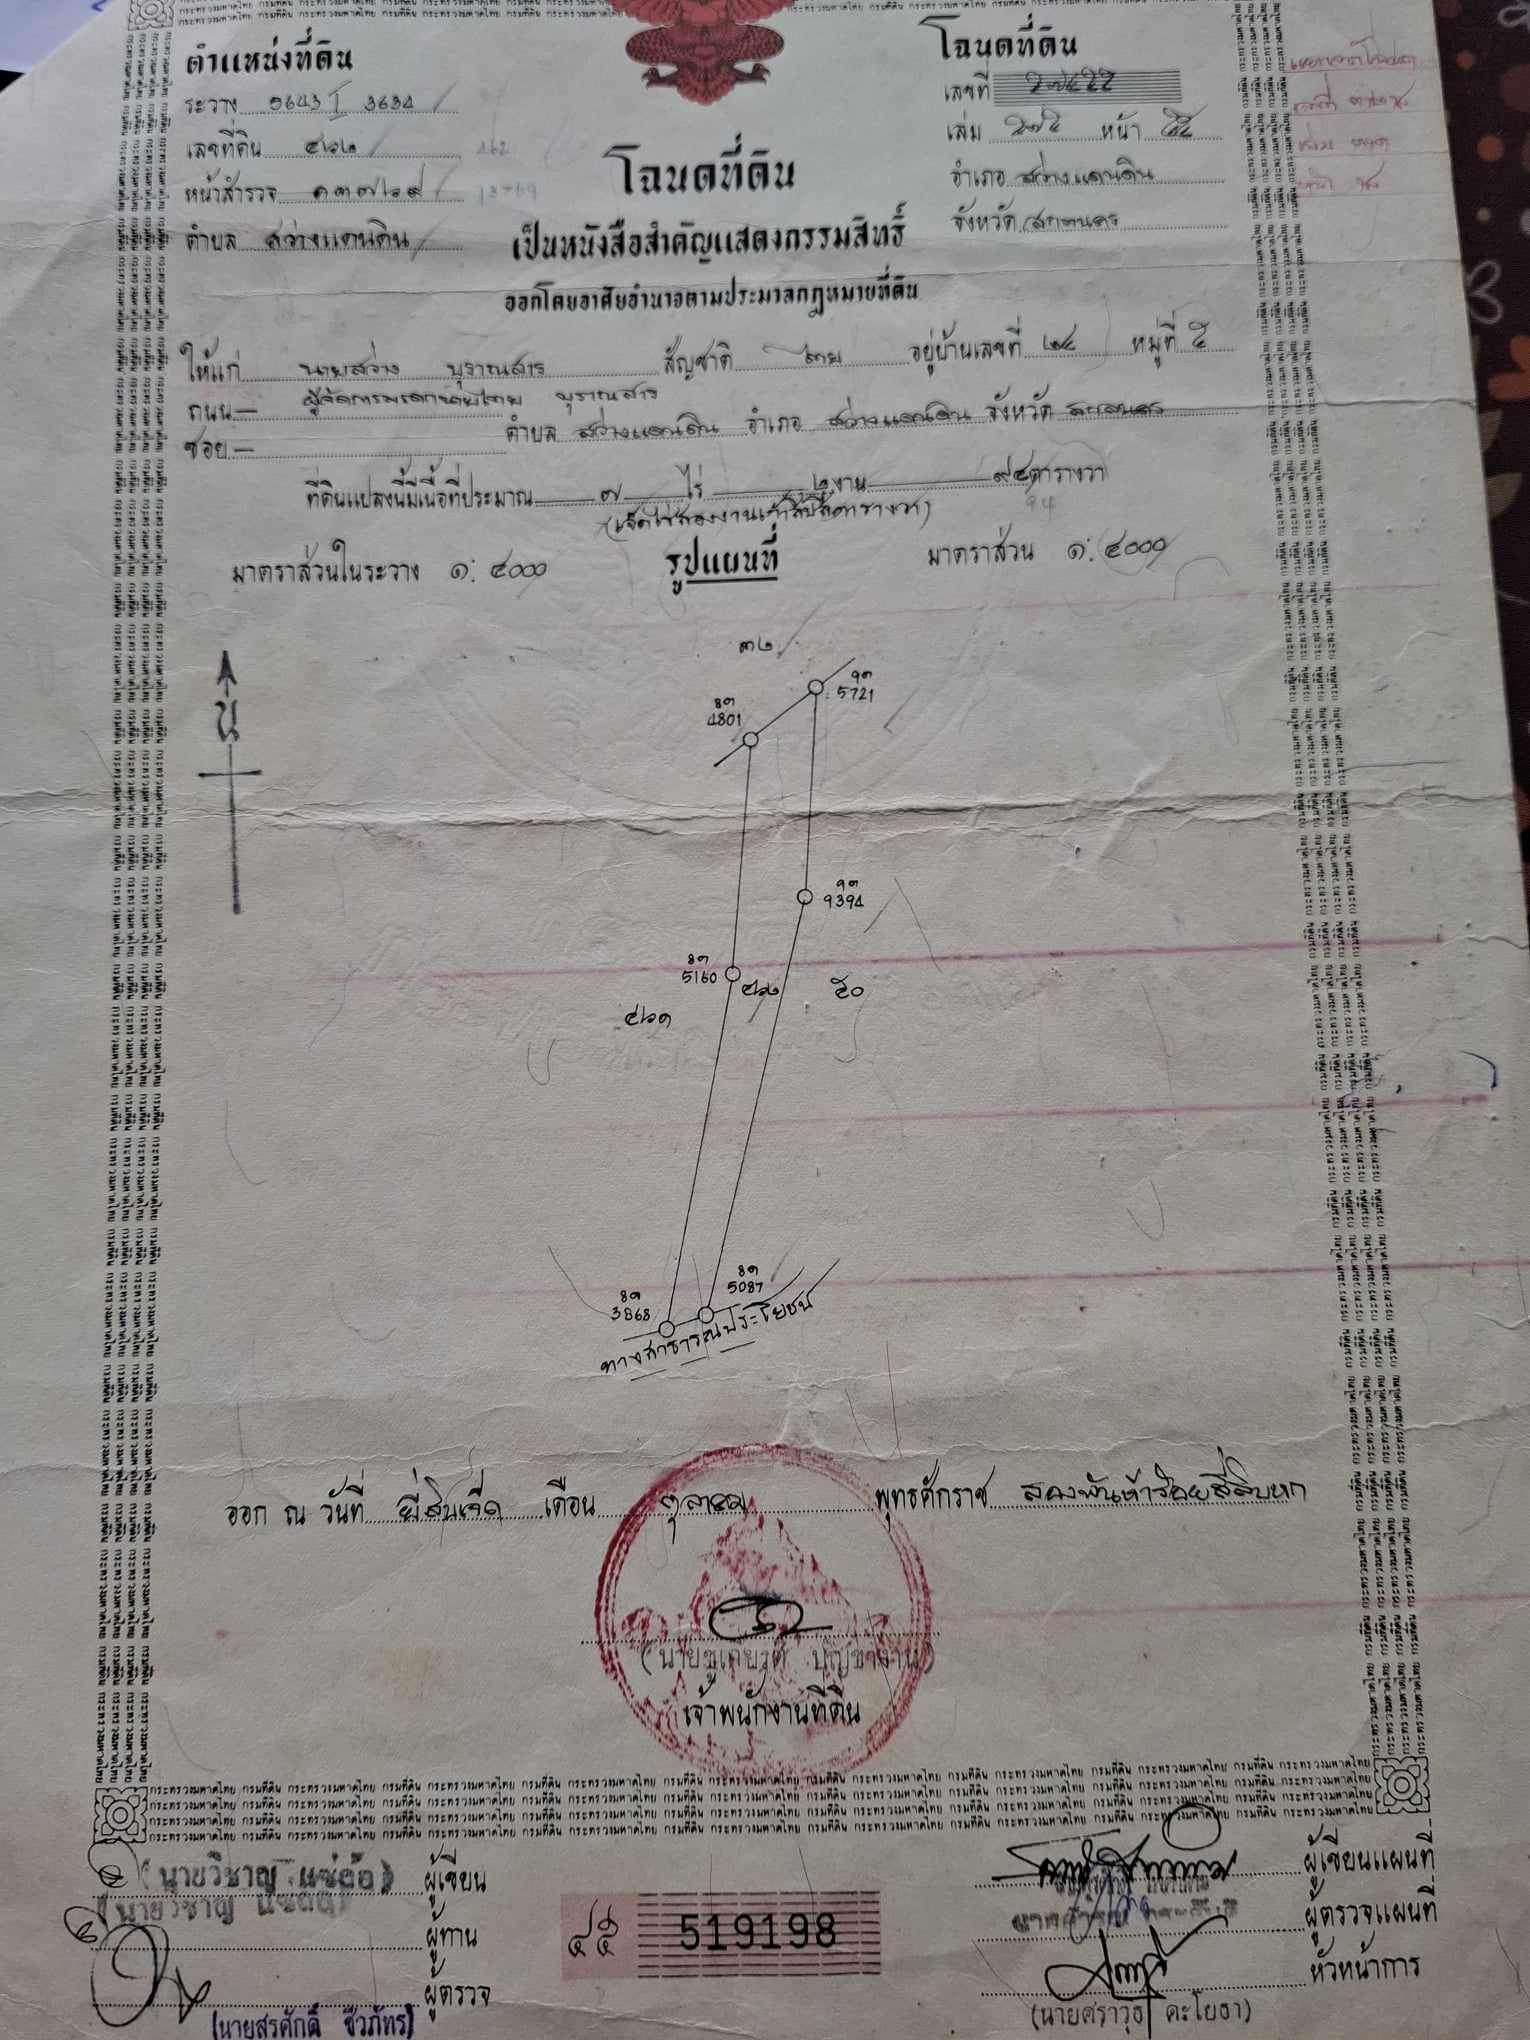 ตำแหน่งที่ดิน
ระวาง 5643 I 3634
เลขที่ดิน ๔๖๒
หน้าสำรวจ ๑๓๗๖๙
ตำบล สว่างแดนดิน
โฉนดที่ดิน
เลขที่
เล่ม ๒๗๕ หน้า ๕๕
อำเภอ สว่างแดนดิน
จังหวัด สกลนคร
โฉนดที่ดิน
เป็นหนังสือสำคัญแสดงกรรมสิทธิ์
ออกโดยอาศัยอำนาจตามประมวลกฎหมายที่ดิน
ให้แก่ นายสว่าง บุราณสาร สัญชาติ ไทย อยู่บ้านเลขที่ ๒๔ หมู่ที่ ๕
ผู้จัดการมรดก บุราณสาร
ถนน —
ซอย — ตำบล สว่างแดนดิน อำเภอ สว่างแดนดิน จังหวัด สกลนคร
ที่ดินแปลงนี้มีเนื้อที่ประมาณ ๗ ไร่ ๒ งาน ๙๔ ตารางวา
(เจ็ดไร่สองงานเก้าสิบสี่ตารางวา) 94
มาตราส่วนในระวาง ๑: ๔๐๐๐ รูปแผนที่ มาตราส่วน ๑: ๔๐๐๐
๓๒
น
5721
4801
9394
5160
๔๖๒ ๕๐
๔๖๑
5087
3868
ทางสาธารณประโยชน์
ออก ณ วันที่ ยี่สิบเจ็ด เดือน ตุลาคม พุทธศักราช สองพันห้าร้อยสี่สิบหก
เจ้าพนักงานที่ดิน
กระทรวงมหาดไทย กรมที่ดิน
(นายวิชาญ แซ่อ้อ) ผู้เขียน
ผู้ทาน
ผู้ตรวจ
(นายสรศักดิ์ ชีวภัทร)
519198
ผู้เขียนแผนที่
ผู้ตรวจแผนที่
หัวหน้าการ
(นายศราวุธ คะโยธา)